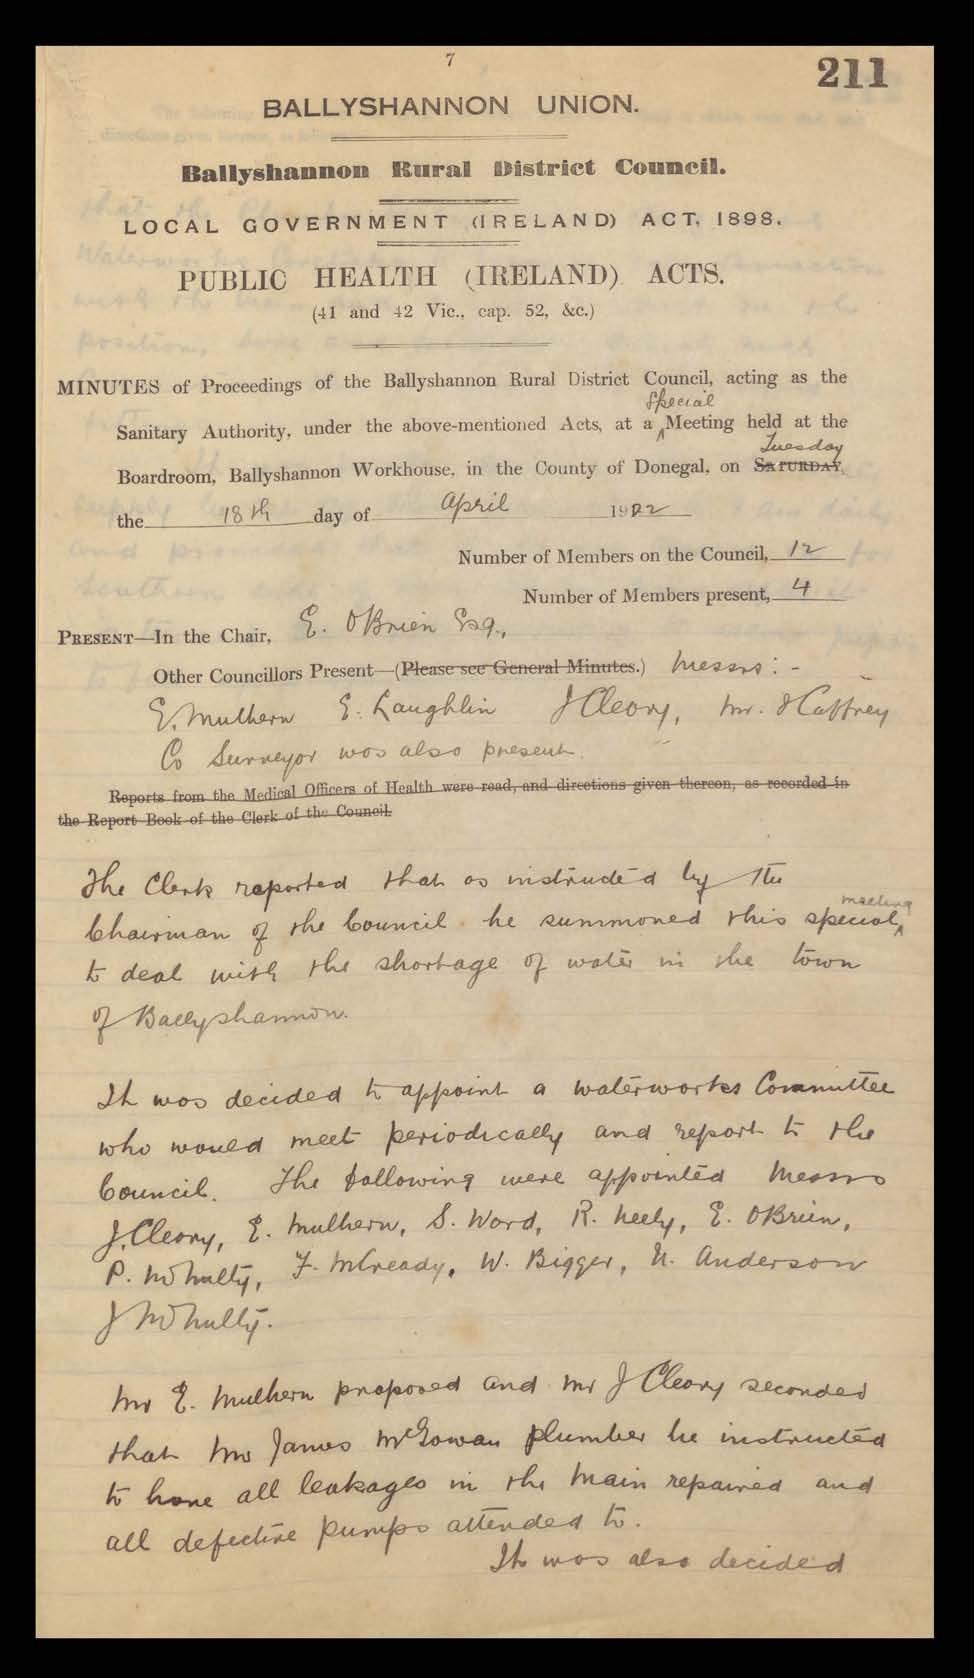 7
211
BALLYSHANNON UNION.
Ballyshannon Rural District Council.
LOCAL GOVERNMENT (IRELAND) ACT, 1898.
PUBLIC HEALTH (IRELAND) ACTS.
(41 and 42 Vic., cap. 52, &c.)
MINUTES of Proceedings of the Ballyshannon Rural District Council, acting as the
Special
Sanitary Authority, under the above-mentioned Acts, at a Meeting held at the
Tuesday
Boardroom, Ballyshannon Workhouse, in the County of Donegal, on SATURDAY,
the 18th day of April 1922
Number of Members on the Council, 12
Number of Members present, 4
PRESENT—In the Chair, E. OBrien Esq.,
Other Councillors Present—(Please see General Minutes.) Messrs: -
E. Mulhern E. Laughlin J Cleary, Mr. J Caffrey
Co Surveyor was also present.
Reports from the Medical Officers of Health were read, and directions given thereon, as recorded in
the Report Book of the Clerk of the Council.
The Clerk reported that as instructed by the
meeting
Chairman of the Council he summoned this special
to deal with the shortage of water in the town
of Ballyshannon.
It was decided to appoint a waterworks Committee
who would meet periodically and report to the
Council. The following were appointed Messrs
J. Cleary, E. Mulhern, S. Ward, R. Neely, E. OBrien,
P. McNulty, F. McCready, W. Bigger, N. Anderson
J McNulty.
Mr E. Mulhern proposed and Mr J Cleary seconded
that Mr James McGowan plumber be instructed
to have all leakages in the Main repaired and
all defective pumps attended to.
It was also decided